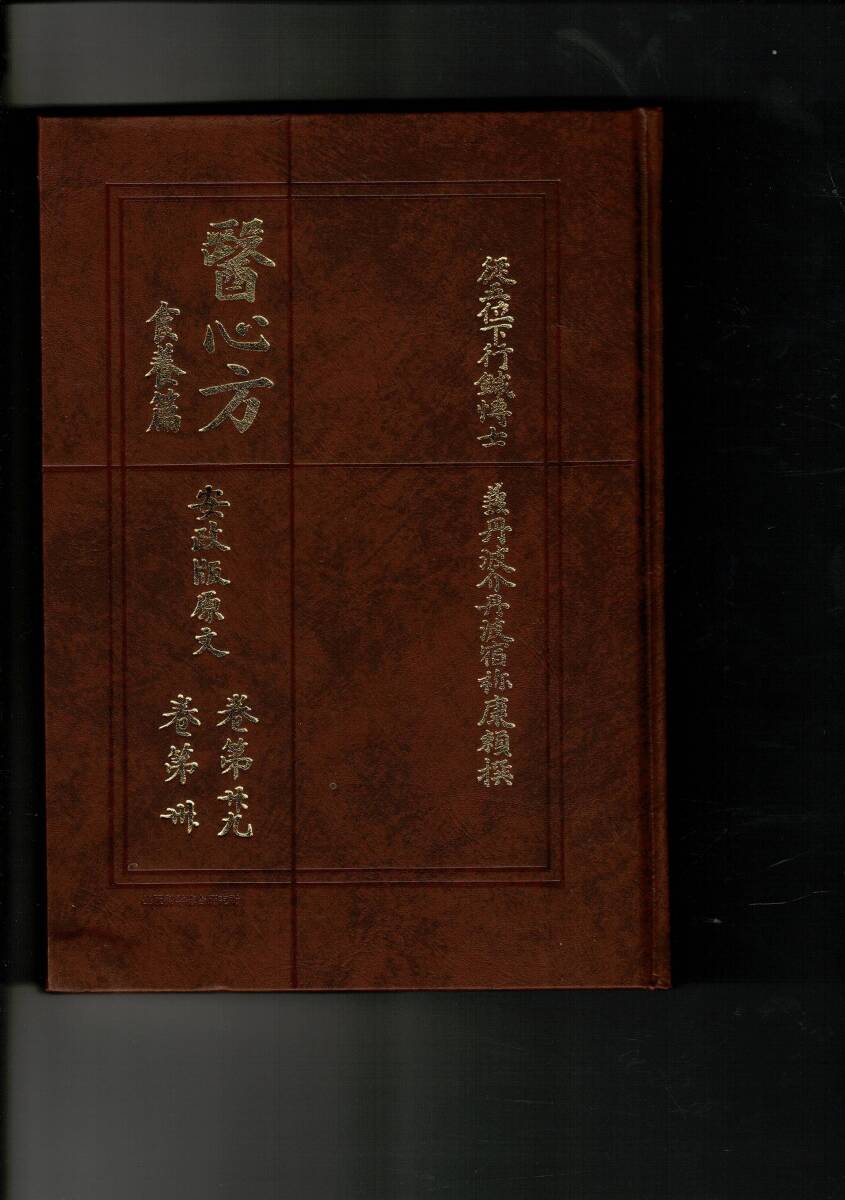 從五位下行鍼博士 兼丹波介丹波宿祢康頼撰
醫心方
食養篇
安政版原文
巻第廿九
巻第卅